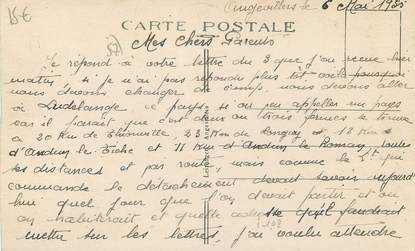 15€
Angevillers le 6 Mai 1935
CARTE POSTALE
(57)
Mes Chers Parents
Je répond à votre lettre du 3 que j'ai reçue hier
matin, si je n'ai pas répondu plus tôt voilà pourquoi
nous devons changer de camp, nous devons aller
à Ludelange, ce pays si on peu appeller un pays
car il parait que c'est deux ou trois fermes se trouve
à 20 Km de Thionville, 23 Km de Longwy et 12 Km
d'Audun le Tiche et 11 Km d'Audun le Roman, toutes
ses distances et par route, mais comme le Lt qui
commande le détachement devait savoir aujourd
hui quel jour que l'on devait partir et ou
on habiterait et quelle adresse qu'il faudrait
mettre sur les lettres, j'ai voulu attendre